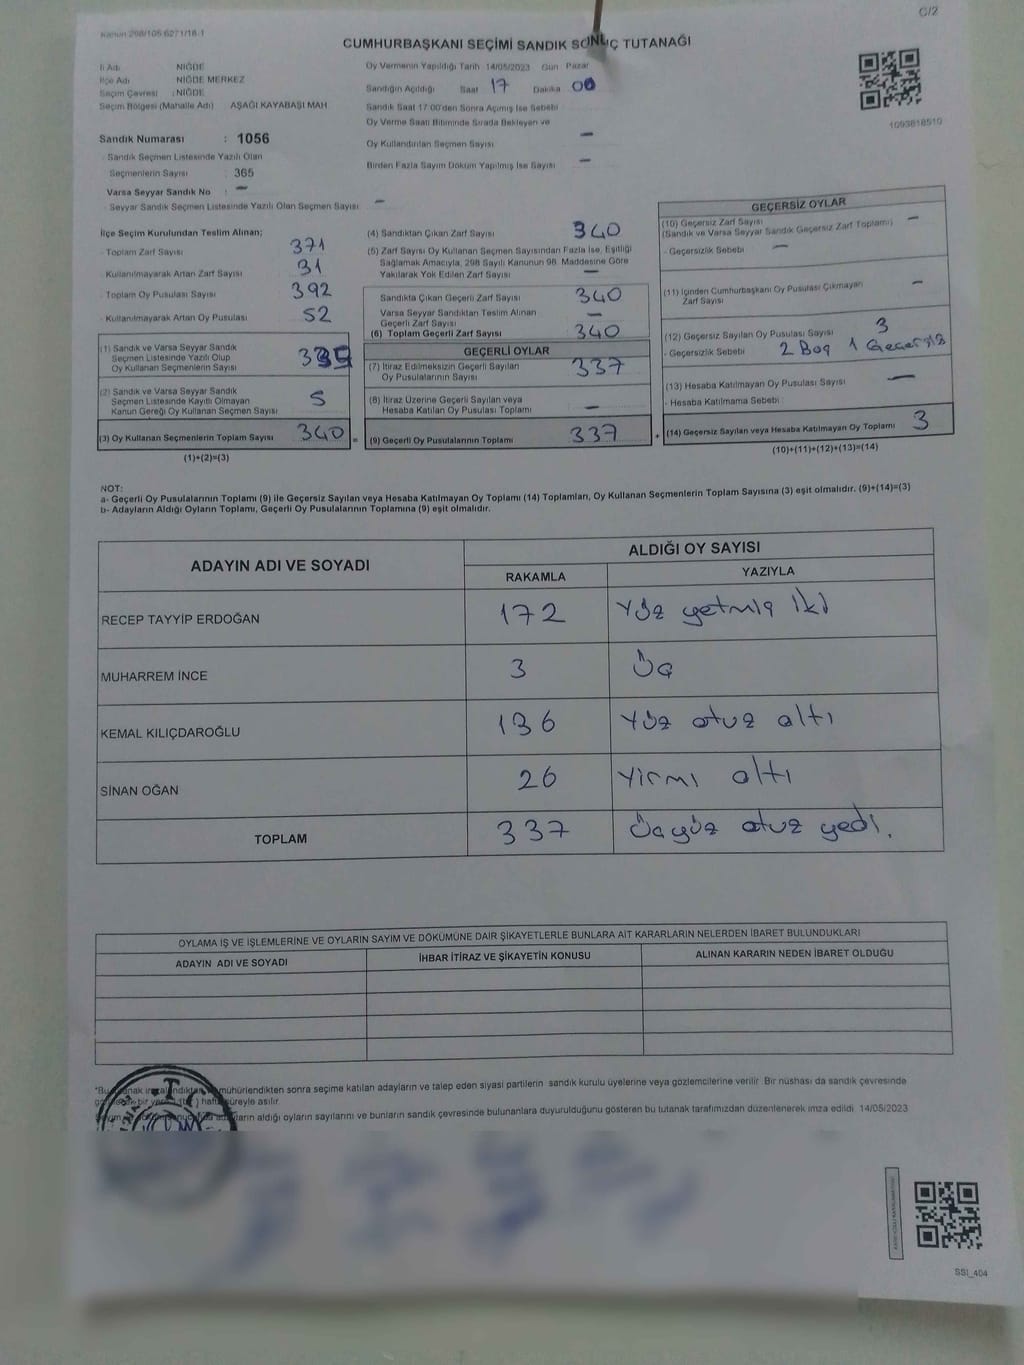 C/2
Kanun 298/105 6271/18-1
CUMHURBAŞKANI SEÇİMİ SANDIK SONUÇ TUTANAĞI
İl Adı NİĞDE
İlçe Adı NİĞDE MERKEZ
Seçim Çevresi : NİĞDE
Seçim Bölgesi (Mahalle Adı) AŞAĞI KAYABAŞI MAH
Sandık Numarası : 1056
- Sandık Seçmen Listesinde Yazılı Olan
Seçmenlerin Sayısı : 365
Varsa Seyyar Sandık No : –
- Seyyar Sandık Seçmen Listesinde Yazılı Olan Seçmen Sayısı –
Oy Vermenin Yapıldığı Tarih 14/05/2023 Gün Pazar
Sandığın Açıldığı Saat 17 Dakika 00
Sandık Saat 17:00'den Sonra Açımış İse Sebebi
Oy Verme Saati Bitiminde Sırada Bekleyen ve
Oy Kullandırılan Seçmen Sayısı –
Birden Fazla Sayım Döküm Yapılmış İse Sayısı –
1093818510
İlçe Seçim Kurulundan Teslim Alınan;
- Toplam Zarf Sayısı 371
- Kullanılmayarak Artan Zarf Sayısı 31
- Toplam Oy Pusulası Sayısı 392
- Kullanılmayarak Artan Oy Pusulası 52
(1) Sandık ve Varsa Seyyar Sandık
Seçmen Listesinde Yazılı Olup
Oy Kullanan Seçmenlerin Sayısı 335
(2) Sandık ve Varsa Seyyar Sandık
Seçmen Listesinde Kayıtlı Olmayan
Kanun Gereği Oy Kullanan Seçmen Sayısı 5
(3) Oy Kullanan Seçmenlerin Toplam Sayısı 340 =
(1)+(2)=(3)
(4) Sandıktan Çıkan Zarf Sayısı 340
(5) Zarf Sayısı Oy Kullanan Seçmen Sayısından Fazla İse, Eşitliği
Sağlamak Amacıyla, 298 Sayılı Kanunun 98. Maddesine Göre
Yakılarak Yok Edilen Zarf Sayısı –
Sandıkta Çıkan Geçerli Zarf Sayısı 340
Varsa Seyyar Sandıktan Teslim Alınan
Geçerli Zarf Sayısı –
(6) Toplam Geçerli Zarf Sayısı 340
GEÇERLİ OYLAR
(7) İtiraz Edilmeksizin Geçerli Sayılan
Oy Pusulalarının Sayısı 337
(8) İtiraz Üzerine Geçerli Sayılan veya
Hesaba Katılan Oy Pusulası Toplamı –
(9) Geçerli Oy Pusulalarının Toplamı 337 +
GEÇERSİZ OYLAR
(10) Geçersiz Zarf Sayısı –
(Sandık ve Varsa Seyyar Sandık Geçersiz Zarf Toplamı)
- Geçersizlik Sebebi –
(11) İçinden Cumhurbaşkanı Oy Pusulası Çıkmayan
Zarf Sayısı –
(12) Geçersiz Sayılan Oy Pusulası Sayısı 3
- Geçersizlik Sebebi 2 Boş 1 Geçersiz
(13) Hesaba Katılmayan Oy Pusulası Sayısı –
- Hesaba Katılmama Sebebi
(14) Geçersiz Sayılan veya Hesaba Katılmayan Oy Toplamı 3
(10)+(11)+(12)+(13)=(14)
NOT:
a- Geçerli Oy Pusulalarının Toplamı (9) ile Geçersiz Sayılan veya Hesaba Katılmayan Oy Toplamı (14) Toplamları, Oy Kullanan Seçmenlerin Toplam Sayısına (3) eşit olmalıdır. (9)+(14)=(3)
b- Adayların Aldığı Oyların Toplamı, Geçerli Oy Pusulalarının Toplamına (9) eşit olmalıdır.
ADAYIN ADI VE SOYADI ALDIĞI OY SAYISI
RAKAMLA YAZIYLA
RECEP TAYYİP ERDOĞAN 172 Yüz yetmiş iki
MUHARREM İNCE 3 Üç
KEMAL KILIÇDAROĞLU 136 Yüz otuz altı
SİNAN OĞAN 26 Yirmi altı
TOPLAM 337 Üçyüz otuz yedi.
OYLAMA İŞ VE İŞLEMLERİNE VE OYLARIN SAYIM VE DÖKÜMÜNE DAİR ŞİKAYETLERLE BUNLARA AİT KARARLARIN NELERDEN İBARET BULUNDUKLARI
ADAYIN ADI VE SOYADI İHBAR İTİRAZ VE ŞİKAYETİN KONUSU ALINAN KARARIN NEDEN İBARET OLDUĞU
mühürlendikten sonra seçime katılan adayların ve talep eden siyasi partilerin sandık kurulu üyelerine veya gözlemcilerine verilir Bir nüshası da sandık çevresinde
süreyle asılır.
aldığı oyların sayılarını ve bunların sandık çevresinde bulunanlara duyurulduğunu gösteren bu tutanak tarafımızdan düzenlenerek imza edildi 14/05/2023
T.C.
SSI_404